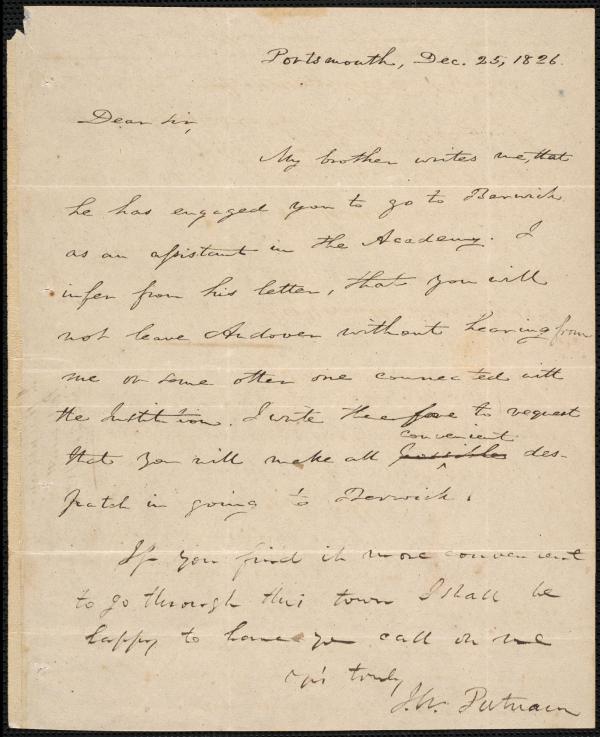 Portsmouth, Dec. 25, 1826.
Dear Sir,
My brother writes me, that
he has engaged you to go to Berwick
as an assistant in the Academy. I
infer from his letter, that you will
not leave Andover without hearing from
me or some other one connected with
the Institution. I write therefore to request
convenient
that you will make all possible des-
patch in going to Berwick.
If you find it more convenient
to go through this town I shall be
happy to have you call on me
Yrs truly
J. W. Putnam